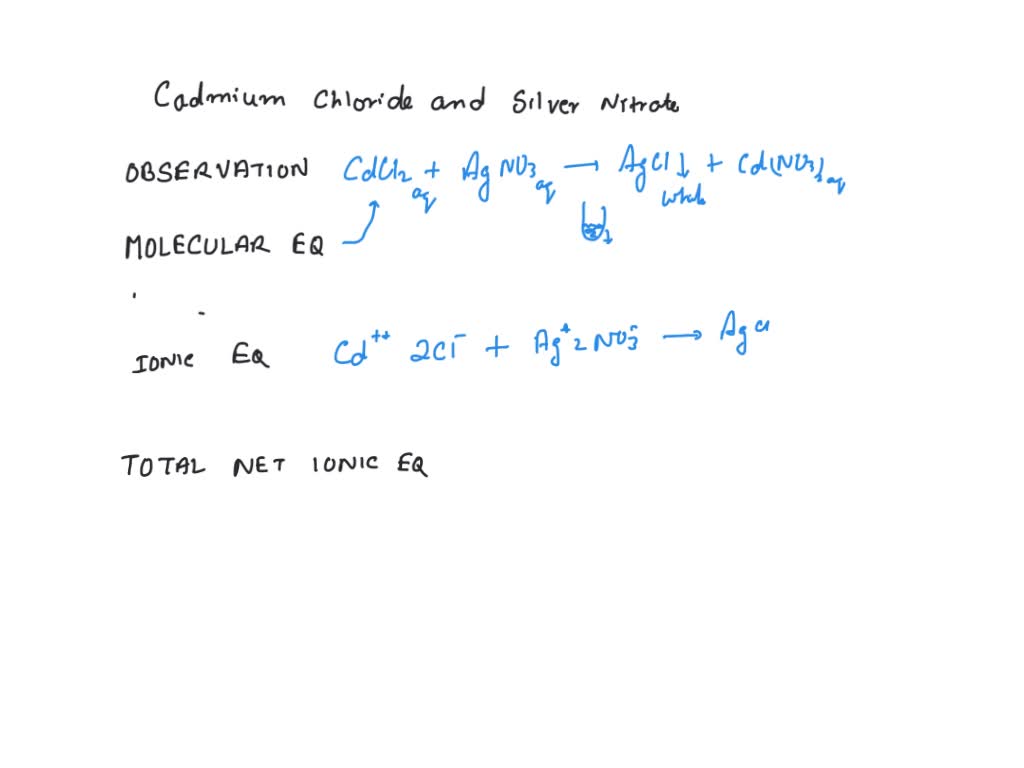 Cadmium Chloride and Silver Nitrate
OBSERVATION CdCl2 aq + AgNO3 aq → AgCl↓ + Cd(NO3)2 aq
MOLECULAR EQ
IONIC EQ Cd++ 2Cl- + Ag+ 2NO3- → AgCl
TOTAL NET IONIC EQ